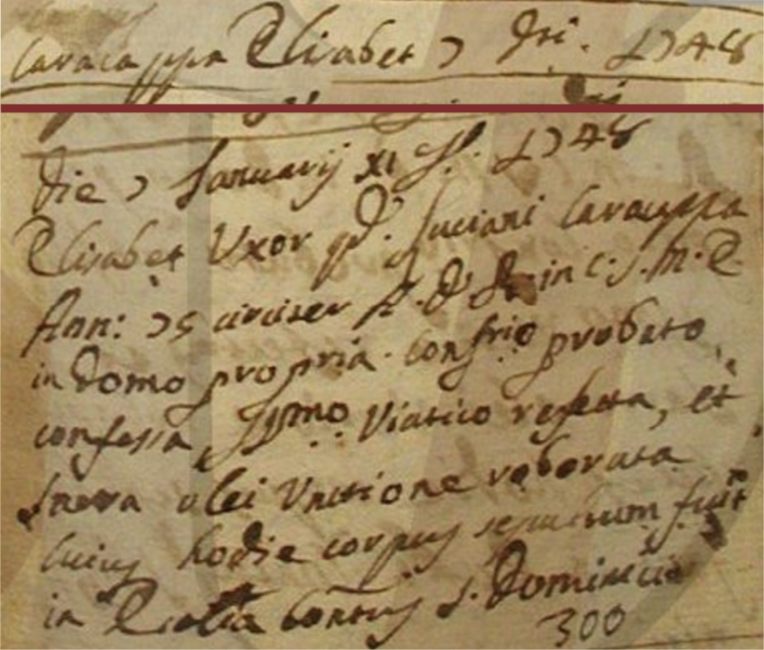 Caracappa Elisabet 7 Jrii. 1748
Die 7 Januarij XI Jl. 1748
Elisabet Uxor qd. Luciani Caracappa
Ann: 75 circiter A. D. R. in C. S. M. E.
in domo propria. Confrio probato
confessa, SSmo Viatico refecta, et
sacra olei Unctione roborata
cuius hodie corpus sepultum fuit
in Ecclia Contus S. Dominici
300